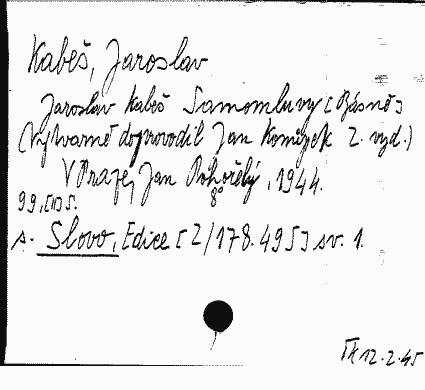 Kabeš, Jaroslav
Jaroslav Kabeš Samomluvy [Básně]
(Výtvarně doprovodil Jan Konůpek 2. vyd.)
V Praze, Jan Pohořelý, 1944.
8°
99, [II] s.
s. Slovo, Edice [2/178.495] sv. 1.
12.2.45